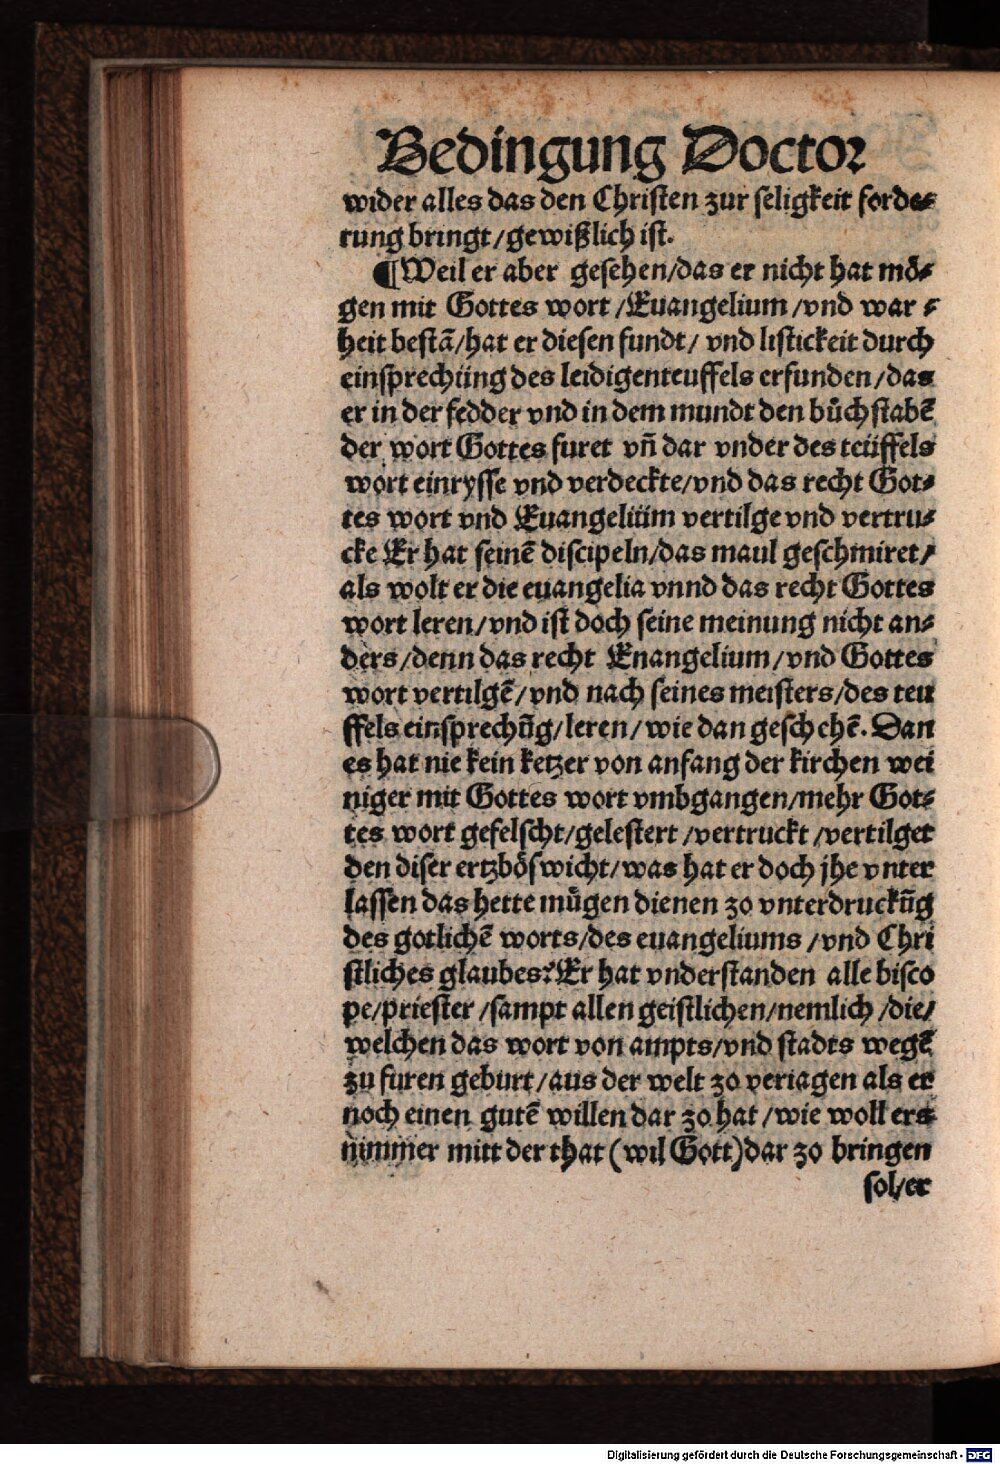 Bedingung Doctor
wider alles das den Christen zur seligkeit forde⸗
rung bringt/gewißlich ist.
¶Weil er aber gesehen/das er nicht hat mö⸗
gen mit Gottes wort /Euangelium /vnd war⸗
heit bestã/hat er diesen fundt/ vnd listickeit durch
einsprechüng des leidigenteuffels erfunden/das
er in der fedder vnd in dem mundt den bůchstabẽ
der wort Gottes furet vñ dar vnder des teüffels
wort einrysse vnd verdeckte/vnd das recht Got⸗
tes wort vnd Euangeliüm vertilge vnd vertru⸗
cke Er hat seinẽ discipeln/das maul geschmiret/
als wolt er die euangelia vnnd das recht Gottes
wort leren/vnd ist doch seine meinung nicht an⸗
ders/denn das recht Enangelium/vnd Gottes
wort vertilgẽ/vnd nach seines meisters/des teu
ffels einsprechũg/leren/wie dan geschehẽ. Dan
es hat nie kein ketzer von anfang der kirchen wei
niger mit Gottes wort vmbgangen/mehr Got⸗
tes wort gefelscht/gelestert /vertruckt /vertilget
den diser ertzbőswicht/was hat er doch jhe vnter
lassen das hette můgen dienen zo vnterdruckũg
des gotlichẽ worts/des euangeliums /vnd Chri
stliches glaubes? Er hat vnderstanden alle bisco
pe/priester /sampt allen geistlichen/nemlich /die/
welchen das wort von ampts/vnd stadts wegẽ
zu furen geburt/aus der welt zo veriagen als er
noch einen gutẽ willen dar zo hat /wie woll ers
nimmer mitt der that (wil Gott)dar zo bringen
sol/er
Digitalisierung gefördert durch die Deutsche Forschungsgemeinschaft - DFG